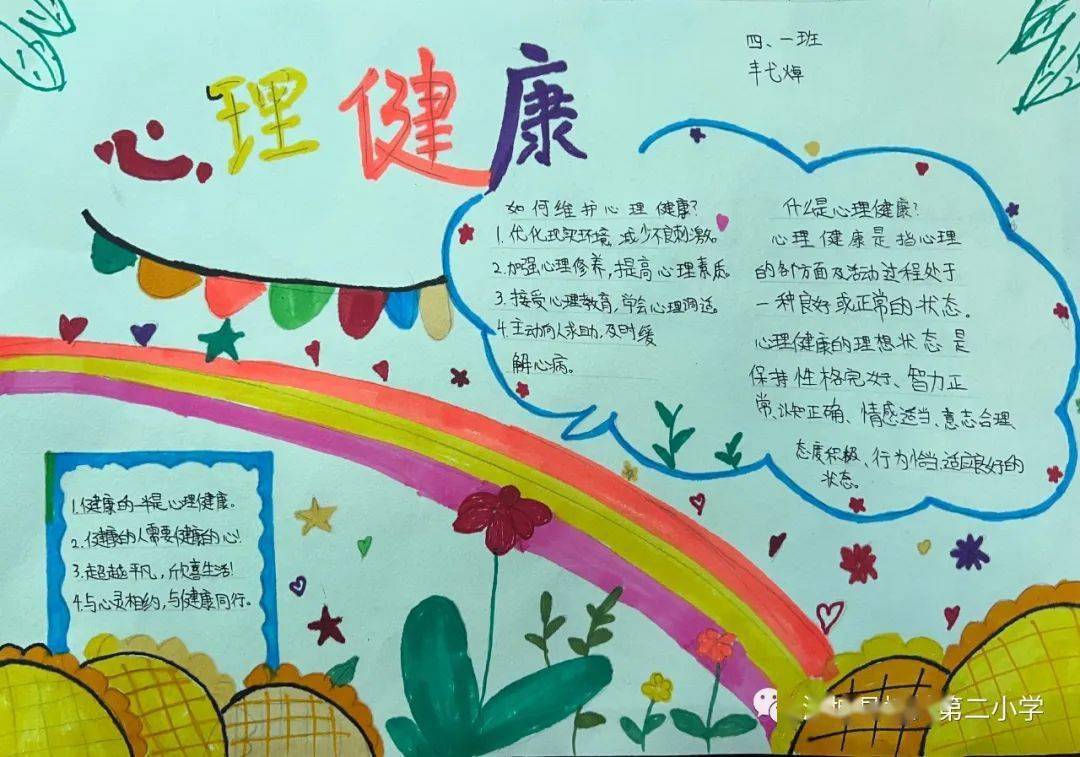 心理健康
四、一班
如何维护心理健康?
1.优化现实环境,减少不良刺激。
2.加强心理修养,提高心理素质
3.接受心理教育,学会心理调适。
4.主动向人求助,及时缓
解心病。
什么是心理健康?
心理健康是指心理
的各个方面及活动过程处于
一种良好或正常的状态。
心理健康的理想状态是
保持性格完好、智力正
常、认知正确、情感适当、意志合理
态度积极、行为恰当、适应良好的
状态。
1.健康的一半是心理健康。
2.健康的人需要健康的心!
3.超越平凡,欣喜生活!
4.与心灵相约,与健康同行。
第二小学